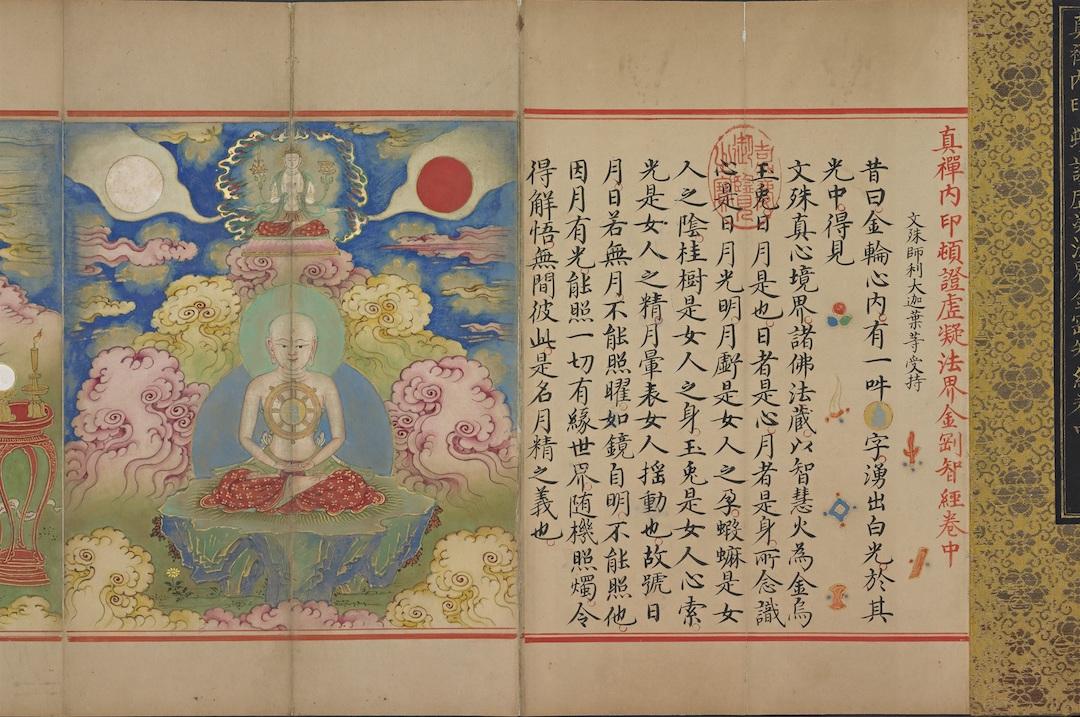 真禪內印頓證虛凝法界金剛智經卷中
文殊師利大迦葉等受持
昔日金輪心內有一吽字湧出白光於其
光中得見
文殊真心境界諸佛法藏以智慧火為金烏
玉兔日月是也日者是心月者是身所念識
心是日月光明月虧是女人之孕蝦蟆是女
人之陰桂樹是女人之身玉兔是女人心索
光是女人之精月暈表女人搖動也故號日
月日若無月不能照曜如鏡自明不能照他
因月有光能照一切有緣世界随機照燭令
得解悟無間彼此是名月精之義也